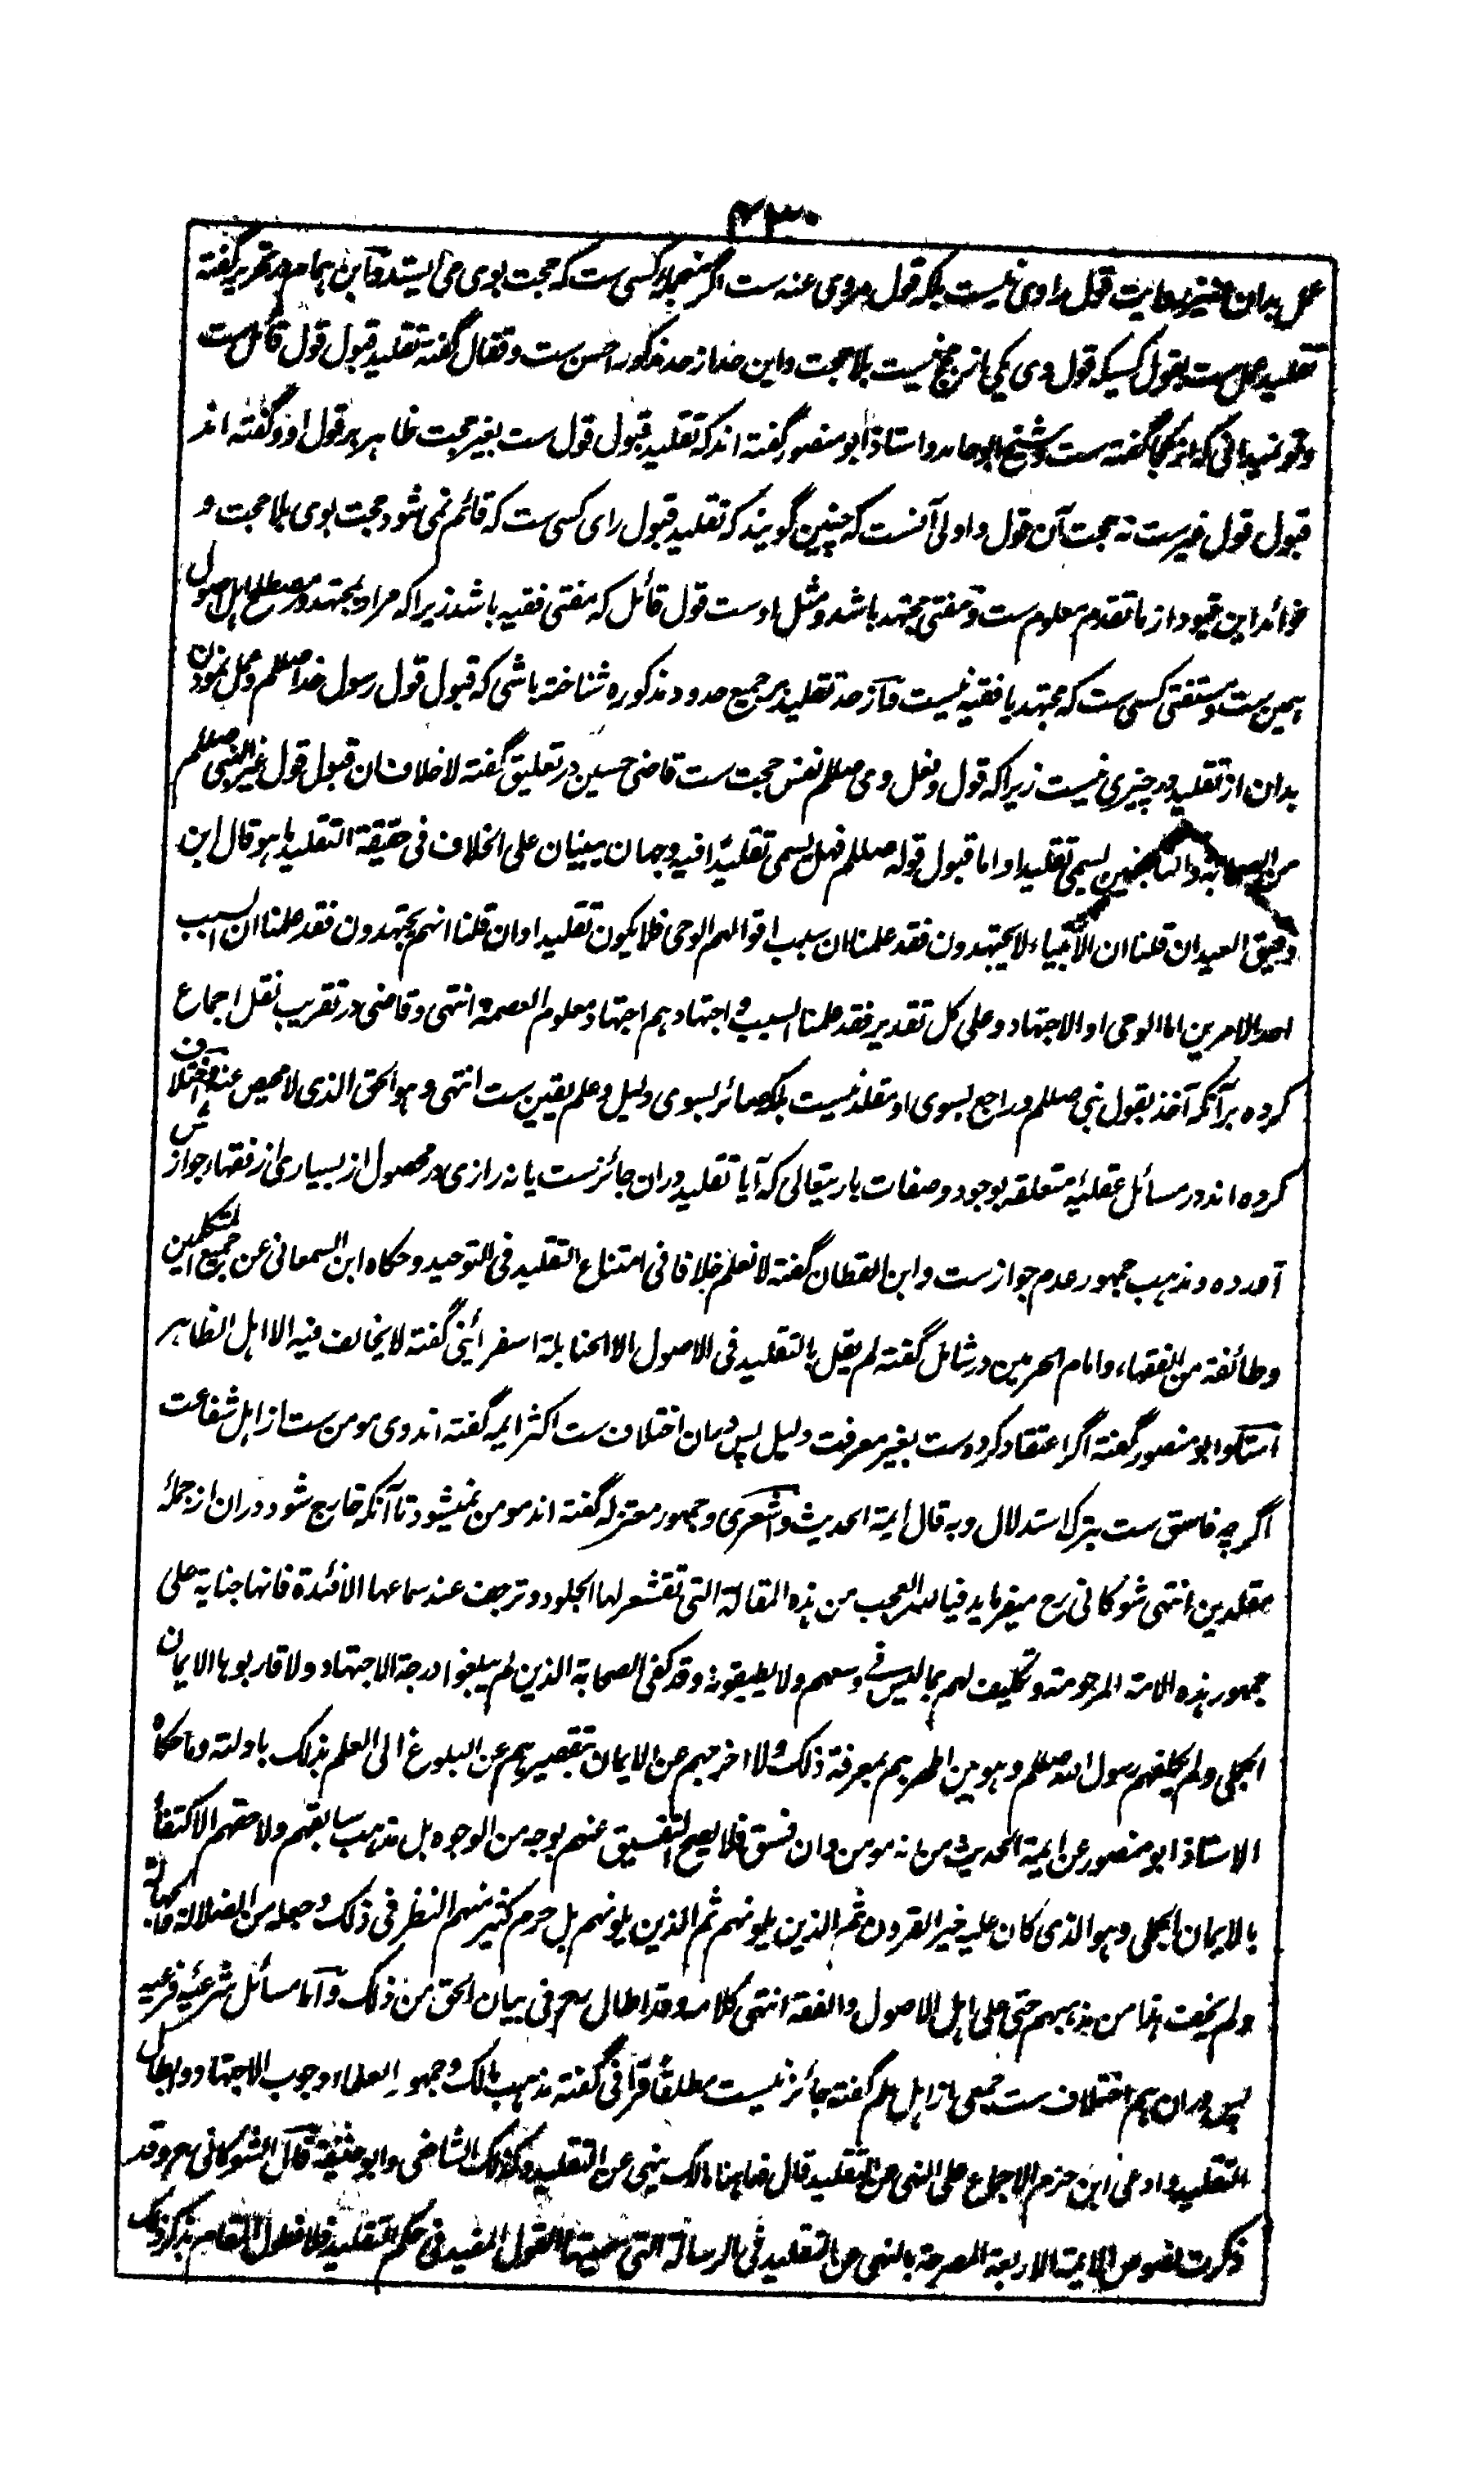 ۴۳۰
عمل بدان نیز روایت قول راوی نیست بلکه قول مروی عنه ست اگر منجمله کسی ست که حجت بوی می ایستد وابن همام در تحریر گفته
تقلید عمل ست بقول کسیکه قول وی یکی از حجج نیست بلا حجت واین حد از حد مذکور احسن ست وقفال گفته تقلید قبول قول قائل ست
وتو نمیدانی که از کجا گفته ست وشیخ ابو حامد واستاذ ابو منصور گفته اند که تقلید قبول قول ست بغیر حجت ظاهر بر قول او وگفته اند
قبول قول غیرست نه حجت آن قول واولی آنست که چنین گویند که تقلید قبول رای کسی ست که قائم نمی شود حجت بوی بلا حجت و
فوائد این قیود از ما تقدم معلوم ست ومفتی مجتهد باشد ومثل اوست قول قائل که مفتی فقیه باشد زیرا که مراد بمجتهد در مصطلح اهل اصول
همین ست ومستفتی کسی ست که مجتهد یا فقیه نیست وآز حد تقلید بر جمیع حدود مذکوره شناخته باشی که قبول قول رسول خدا صللم وعمل نمودن
بدان از تقلید در چیزی نیست زیرا که قول وفعل وی صللم نفس حجت ست قاضی حسین در تعلیق گفته لا خلاف ان قبول قول غیر النبی صللم
من الصحابة والتابعین یسمی تقلیدا واما قبول قوله صللم فهل یسمی تقلیدا فیه وجهان یبنیان علی الخلاف فی حقیقة التقلید ما هو قال ابن
دقیق العید ان قلنا ان الانبیاء لا یجتهدون فقد علمنا ان سبب اقوالهم الوحی فلا یکون تقلیدا وان قلنا انهم یجتهدون فقد علمنا ان السبب
احد الامرین اما الوحی او الاجتهاد وعلی کل تقدیر فقد علمنا السبب واجتهادهم اجتهاد معلوم العصمة انتهی وقاضی در تقریب نقل اجماع
کرده بر آنکه آخذ بقول نبی صللم وراجع بسوی او مقلد نیست بلکه صائر بسوی دلیل وعلم یقین ست انتهی وهو الحق الذی لا محیص عنه واختلاف
کرده اند در مسائل عقلیه متعلقه بوجود وصفات باریتعالی که آیا تقلید دران جائزست یا نه رازی در محصول از بسیاری از فقهاء جوازش
آورده ومذهب جمهور عدم جوازست وابن القطان گفته لا نعلم خلافا فی امتناع التقلید فی التوحید وحکاه ابن السمعانی عن جمیع المتکلمین
وطائفة من الفقهاء، وامام الحرمین در شامل گفته لم یقل بالتقلید فی الاصول الا الحنابلة اسفرائینی گفته لا یخالف فیه الا اهل الظاهر
استاذ ابو منصور گفته اگر اعتقاد کرده ست بغیر معرفت دلیل پس دران اختلاف ست اکثر ایمه گفته اند وی مومن ست از اهل شفاعت
اگرچه فاسق ست بترک استدلال وبه قال ایمة الحدیث واشعری وجمهور معتزله گفته اند مومن نمیشود تا آنکه خارج شود دران از جمله
مقلدین انتهی شوکانی رح میفرماید فیا لله العجب من هذه المقالة التی تقشعر لها الجلود وترجف عند سماعها الافئدة فانها جنایة علی
جمهور هذه الامة المرحومة وتکلیف لهم بما لیس فی وسعهم ولا یطیقونه وقد کفی الصحابة الذین لم یبلغوا درجة الاجتهاد ولا قاربوها الایمان
الجملی ولم یکلفهم رسول الله صللم وهو بین اظهرهم بمعرفة ذلک ولا اخرجهم عن الایمان بتقصیرهم عن البلوغ الی العلم بذلک بادلته وما حکاه
الاستاذ ابو منصور عن ایمة الحدیث من انه مومن وان فسق فلا یصح التفسیق عنهم بوجه من الوجوه بل مذهب سابقهم ولاحقهم الاکتفاء
بالایمان الجملی وهو الذی کان علیه خیر القرون ثم الذین یلونهم ثم الذین یلونهم بل حرم کثیر منهم النظر فی ذلک وجعله من الضلالة والجهالة
ولم یخف هذا من مذهبهم حتی علی اهل الاصول والفقه انتهی کلامه وقد اطال رح فی بیان الحق من ذلک وآما مسائل شرعیه فرعیه
پس دران هم اختلاف ست جمعی از اهل علم گفته جائز نیست مطلقا قرافی گفته مذهب مالک وجمهور العلماء وجوب الاجتهاد وابطال
التقلید وادعی ابن حزم الاجماع علی النهی عن التقلید قال فهاهنا مالک ینهی عن التقلید وکذلک الشافعی وابو حنیفة قال الشوکانی رح وقد
ذکرت نصوص الایمة الاربعة المصرحة بالنهی عن التقلید فی الرسالة التی سمیتها القول المفید فی حکم التقلید فلا نطول المقام بذکر ذلک